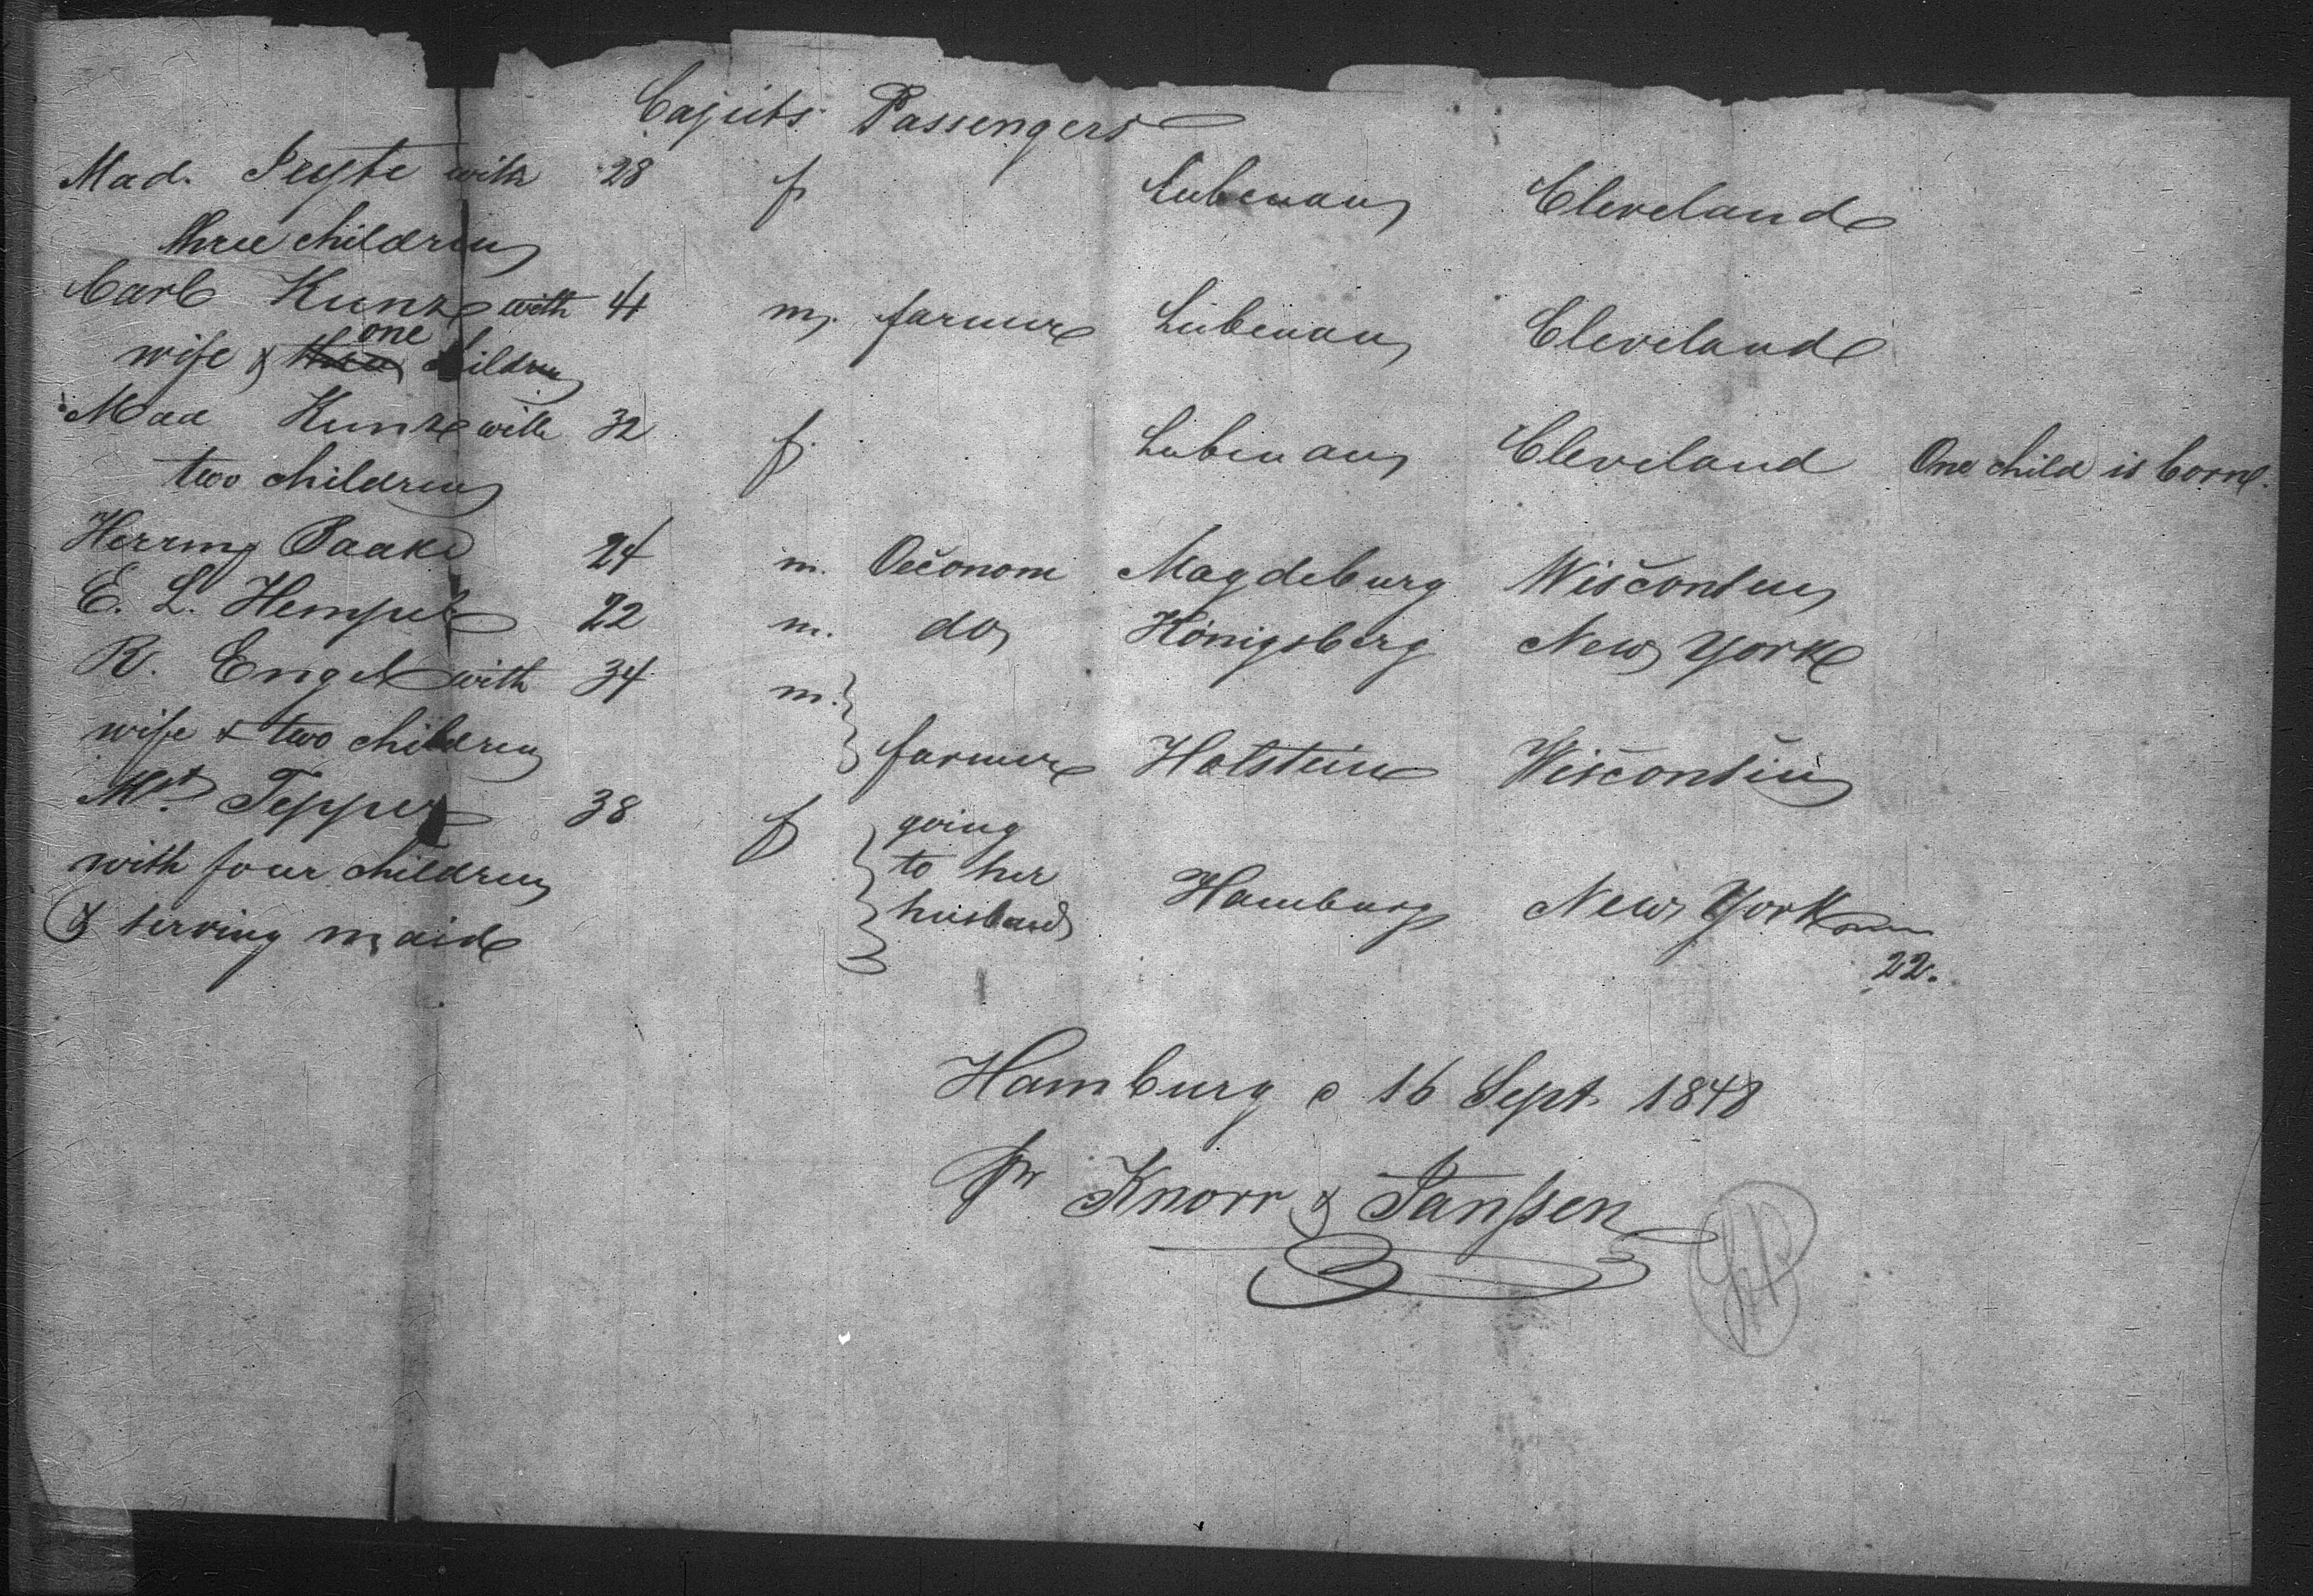 Cajüts Passengers
Mad. with 28 f Lübenau Cleveland
three children
Carl Kunze with 41 m. farmer Lübenau Cleveland
one
wife & children
Mad Kunze with 32 f. Lübenau Cleveland One child is born.
two children
Herrmg Baake 24 m. Oeconom Magdeburg Wisconsin
E. L. Hempel 22 m. do Königsberg New York
R. Engel with 34 m.
wife & two children farmer Holstein Wisconsin
Mrs Tepper 38 f going
with four children to her
& serving maid husband Hamburg New York
22.
Hamburg d 16 Sept. 1848
pr Knorr & Janssen